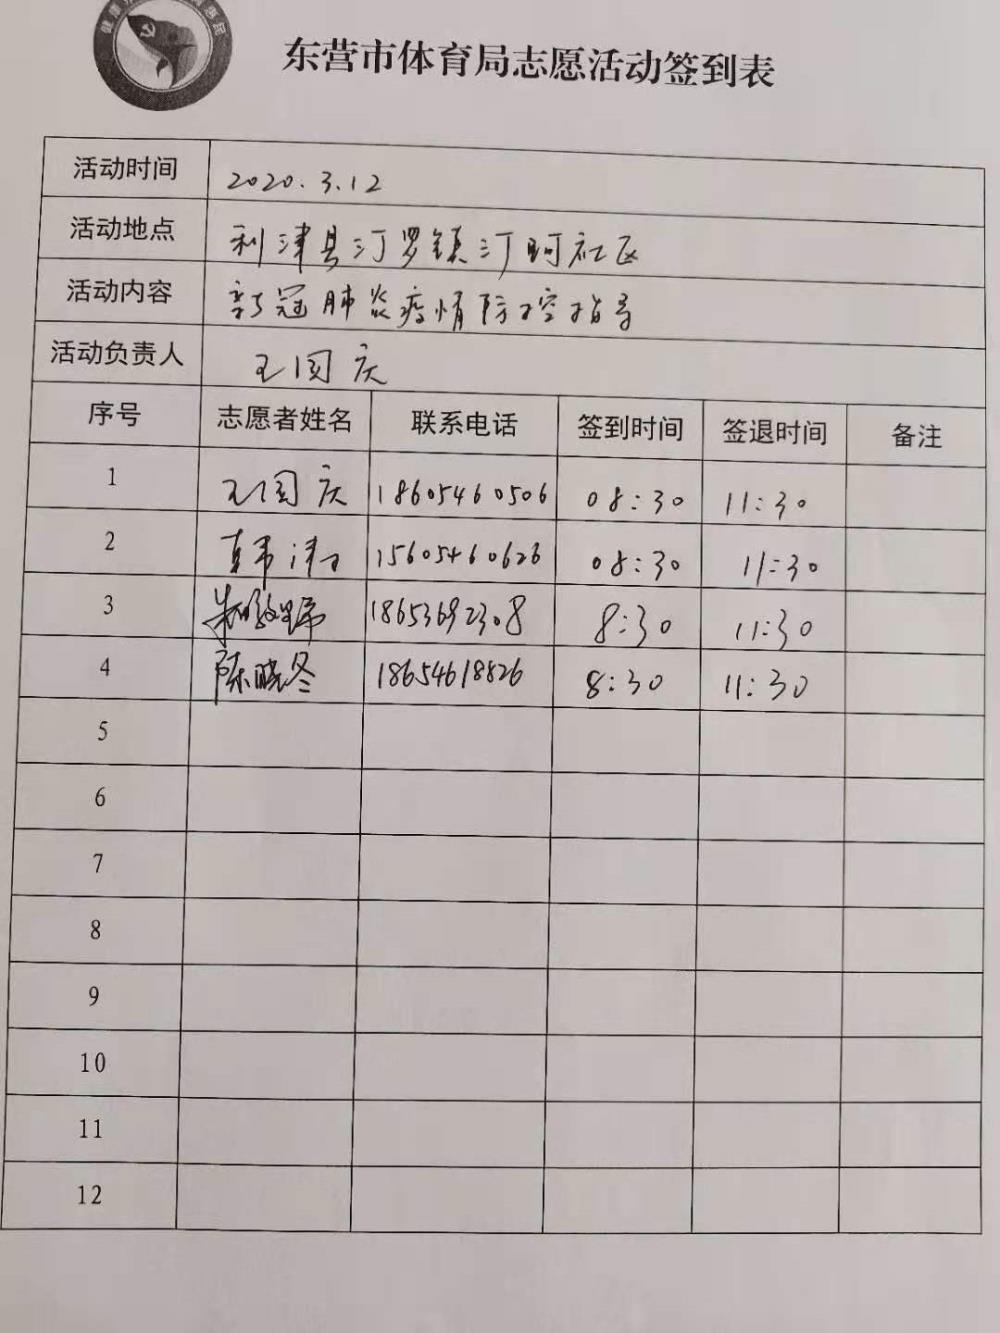 东营市体育局志愿活动签到表
活动时间 2020.3.12
活动地点 利津县汀罗镇汀河社区
活动内容 新冠肺炎疫情防控指导
活动负责人 王国庆
序号 志愿者姓名 联系电话 签到时间 签退时间 备注
1 王国庆 18605460506 08:30 11:30
2 15605460626 08:30 11:30
3 18653692308 8:30 11:30
4 陈晓冬 18654618826 8:30 11:30
5
6
7
8
9
10
11
12